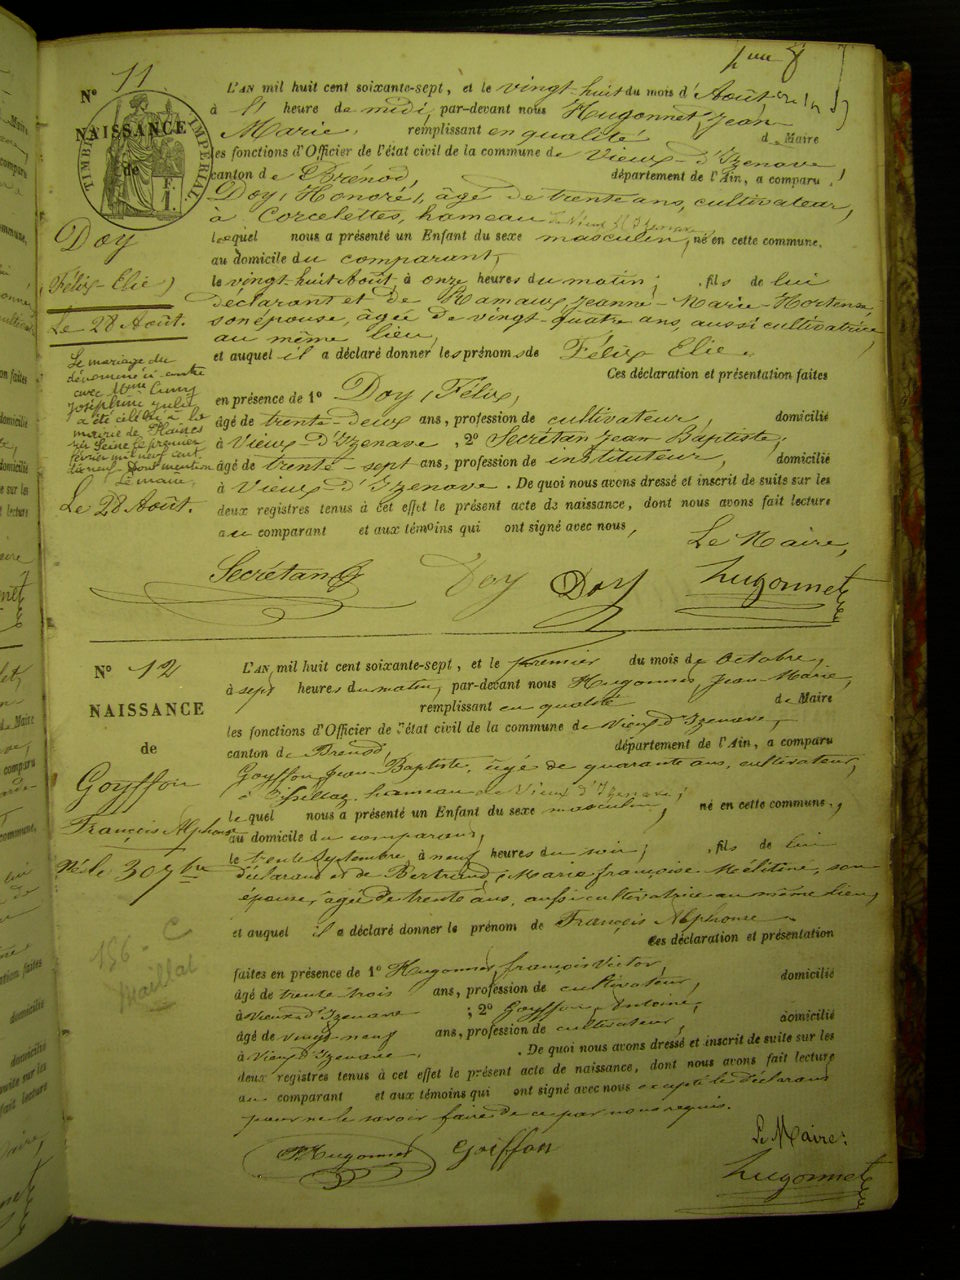 N° 11
NAISSANCE
de
TIMBRE IMPERIAL
F.
1.
Doy
(Félix-Elie)
Le 28 Août.
Le mariage du
dénommé ci contre
avec Mme Cuny
Joséphine Julie
a été célébré à la
mairie de
sur Seine le premier
février mil neuf cent
dix neuf - Dont mention
Le maire,
Le 28 Août.
L'AN mil huit cent soixante-sept, et le vingt huit du mois d'Août,
à 1 heure de midi, par-devant nous Hugonnet, Jean
Marie, remplissant en qualité de Maire
les fonctions d'Officier de l'état civil de la commune de Vieux-d'Izenave,
canton de Brénod, département de l'Ain, a comparu,
Doy, Honoré, âgé de trente ans, cultivateur,
à Corcelettes, hameau de Vieux d'Izenave
lequel nous a présenté un Enfant du sexe masculin, né en cette commune,
au domicile du comparant,
le vingt-huit Août, à onze heures du matin; fils de lui
déclarant et de Ramaux, Jeanne-Marie-Hortense,
son épouse, âgée de vingt-quatre ans, aussi cultivatrice
au même lieu,
et auquel il a déclaré donner les prénoms de Félix Elie.
Ces déclaration et présentation faites
en présence de 1° Doy, Félix,
âgé de trente-deux ans, profession de cultivateur, domicilié
à Vieux-d'Izenave, 2° Secrétan Jean Baptiste,
âgé de trente-sept ans, profession de instituteur, domicilié
à Vieux d'Izenave. De quoi nous avons dressé et inscrit de suite sur les
deux registres tenus à cet effet le présent acte de naissance, dont nous avons fait lecture
au comparant et aux témoins qui ont signé avec nous,
Le Maire,
Secrétan Doy Doy Hugonnet
N° 12
NAISSANCE
de
Goyffon
François Alphonse
Né le 30 7bre
156 - C
Maillat
L'AN mil huit cent soixante-sept, et le premier du mois de Octobre,
à sept heures du matin, par-devant nous Hugonnet, Jean-Marie,
remplissant en qualité de Maire
les fonctions d'Officier de l'état civil de la commune de Vieux d'Izenave,
canton de Brenod, département de l'Ain, a comparu
Goyffon Jean-Baptiste, âgé de quarante ans, cultivateur,
à hameau de Vieux d'Izenave;
lequel nous a présenté un Enfant du sexe masculin, né en cette commune,
au domicile du comparant,
le trente Septembre, à neuf heures du soir; fils de lui
déclarant et de Bertrand, Marie françoise Mélitine, son
épouse, âgée de trente ans, aussi cultivatrice au même lieu,
et auquel il a déclaré donner le prénom de François Alphonse
Ces déclaration et présentation
faites en présence de 1° Hugonnet, françois Victor,
âgé de trente-trois ans, profession de cultivateur, domicilié
à Vieux d'Izenave; 2° Goyffon, Antoine,
âgé de vingt-neuf ans, profession de cultivateur, domicilié
à Vieux d'Izenave. De quoi nous avons dressé et inscrit de suite sur les
deux registres tenus à cet effet le présent acte de naissance, dont nous avons fait lecture
au comparant et aux témoins qui ont signé avec nous excepté le déclarant
pour ne le savoir faire de ce par nous requis.
Le Maire:
Hugonnet Goiffon Hugonnet